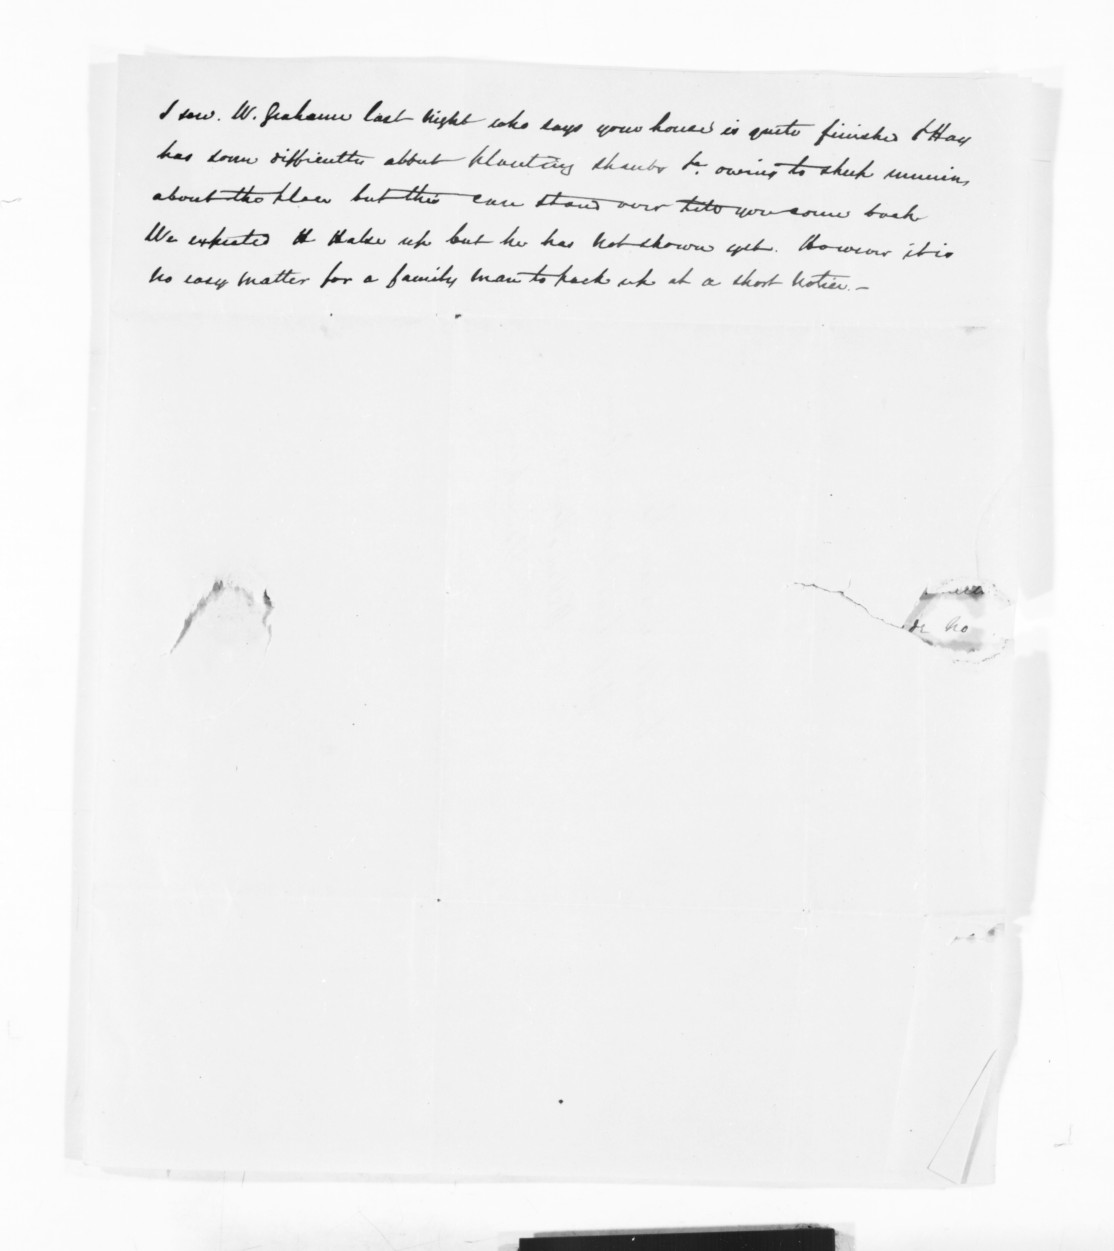 I saw W. Grahame last night who says your house is quite finished & Hay
has some difficulty about planting shrubs &c. owing to sheep running
about the place but this can stand over till you come back
We expected H Halse up but he has not shown yet. However it is
no easy matter for a family man to pack up at a short notice. —